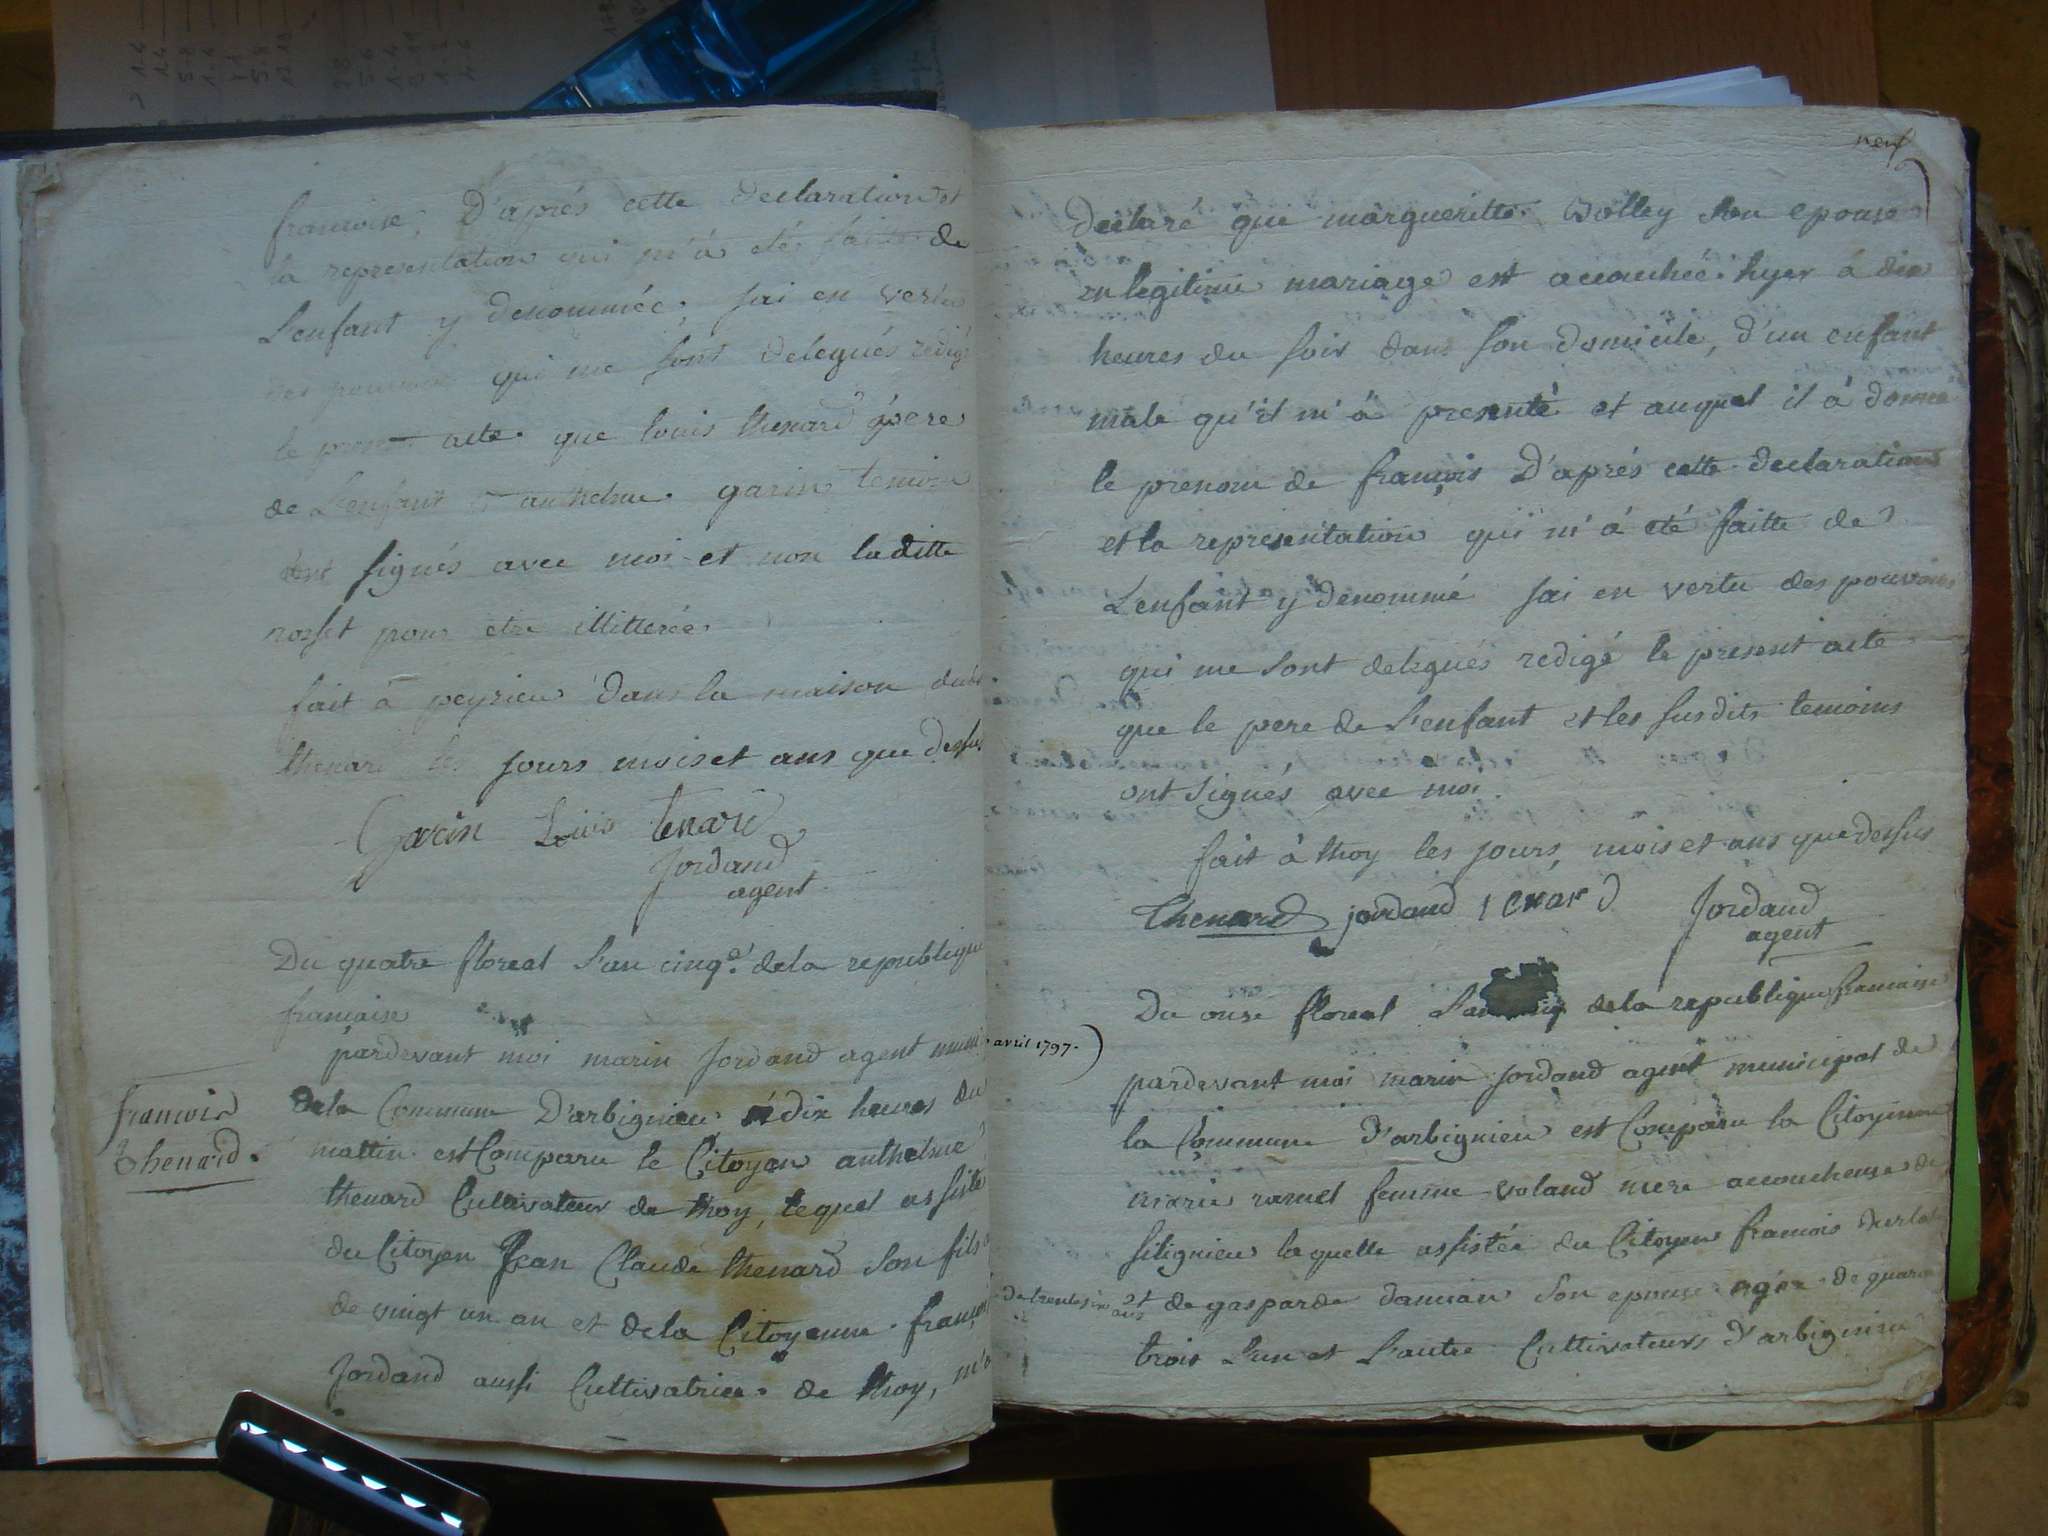 francoise, D'aprés cette declaration et
la representation qui m'a eté faitte de
L'enfant y denommée, Jai en vertu
des pouvoirs qui me sont delegués redigé
le present acte que louis thenard pere
de L'enfant et anthelme garin temoin
ont signés avec moi et non la ditte
rosset pour etre illitterée
fait à peyrieu dans la maison dudit
thenard les jours mois et ans que dessus
Garin Louis tenard
Jordand
agent
Du quatre floreal L'an cinqe. de la republique
francaise
pardevant moi marin Jordand agent muni
de la Commune D'arbignieu à dix heures du
mattin est Comparu le Citoyen anthelme
thenard Cultivateur de thoy, lequel assisté
du Citoyen Jean Claude thenard son fils
de vingt un an et de la Citoyenne françoise
Jordand aussi Cultivatrice de thoy, m'a
francois
thenard.
neuf
declaré que margueritte Bolley son epouse
en legitime mariage est acouchée hyer à dix
heures du soir dans son domicile, d'un enfant
male qu'il m'à presenté et auquel il à donné
le prenom de francois D'aprés cette declaration
et la representation qui m'à eté faitte de
L'enfant y denommé Jai en vertu des pouvoirs
qui me sont delegués redigé le present acte
que le pere de L'enfant et les susdits temoins
ont signés avec moi
fait à thoy les jours, mois et ans que dessus
Thenard jordand tenard Jordand
agent
Du onse floreal L'an de la republique francaise
avril 1797.
pardevant moi marin Jordand agent municipal de
la Commune d'arbignieu est Comparu la Citoyenne
marie ramel femme voland mere acoucheuse de
sillignieu laquelle assistée du Citoyen francois
de trentesix ans et de gasparde damian son epouse agée de quara
trois L'un et L'autre Cultivateurs D'arbignieu